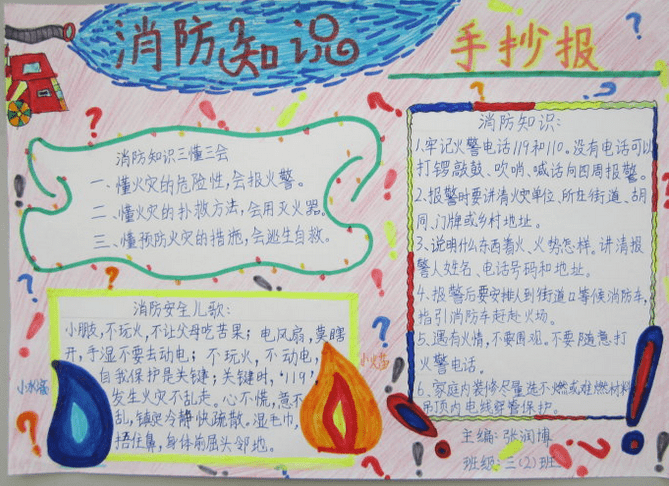 消防知识
手抄报
消防知识三懂三会
一、懂火灾的危险性,会报火警。
二、懂火灾的扑救方法,会用灭火器。
三、懂预防火灾的措施,会逃生自救。
消防安全儿歌:
小朋友,不玩火,不让父母吃苦果;电风扇,莫瞎
开,手湿不要去动电;不玩火,不动电,
自我保护是关键;关键时,‘119’,
发生火灾不乱走。心不慌,意不
乱,镇定冷静快疏散。湿毛巾,
捂住鼻,身体前屈头邻地。
小水滴
消防知识:
1.牢记火警电话119和110。没有电话可以
打锣敲鼓、吹哨、喊话向四周报警。
2.报警时要讲清火灾单位、所在街道、胡
同、门牌或乡村地址。
3、说明什么东西着火、火势怎样。讲清报
警人姓名、电话号码和地址。
4、报警后要安排人到街道口等候消防车,
指引消防车赶赴火场。
5、遇有火情,不要围观。不要随意打
火警电话。
6、家庭内装修尽量选不燃或难燃材料
吊顶内电线穿管保护。
主编:张润博
班级:三(2)班